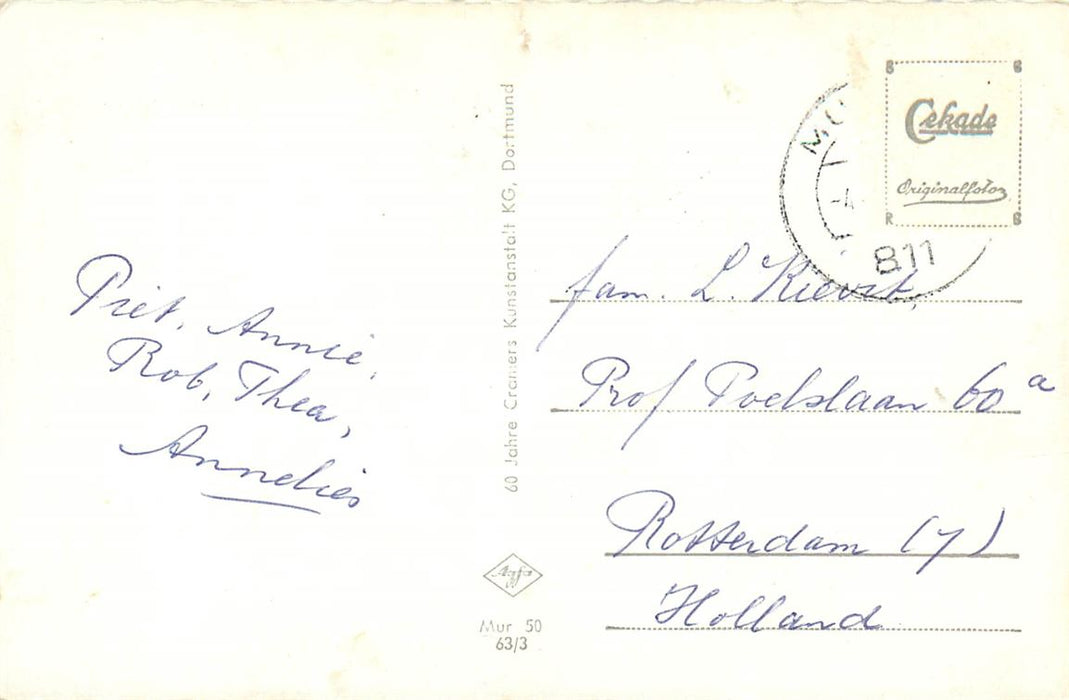 Piet, Annie,
Rob, Thea,
Annelies
60 Jahre Cramers Kunstanstalt KG, Dortmund
Agfa
Mur 50
63/3
Cekade
Originalfoto
B11
fam. L. Kievit
Prof Poelslaan 60 a
Rotterdam (7)
Holland